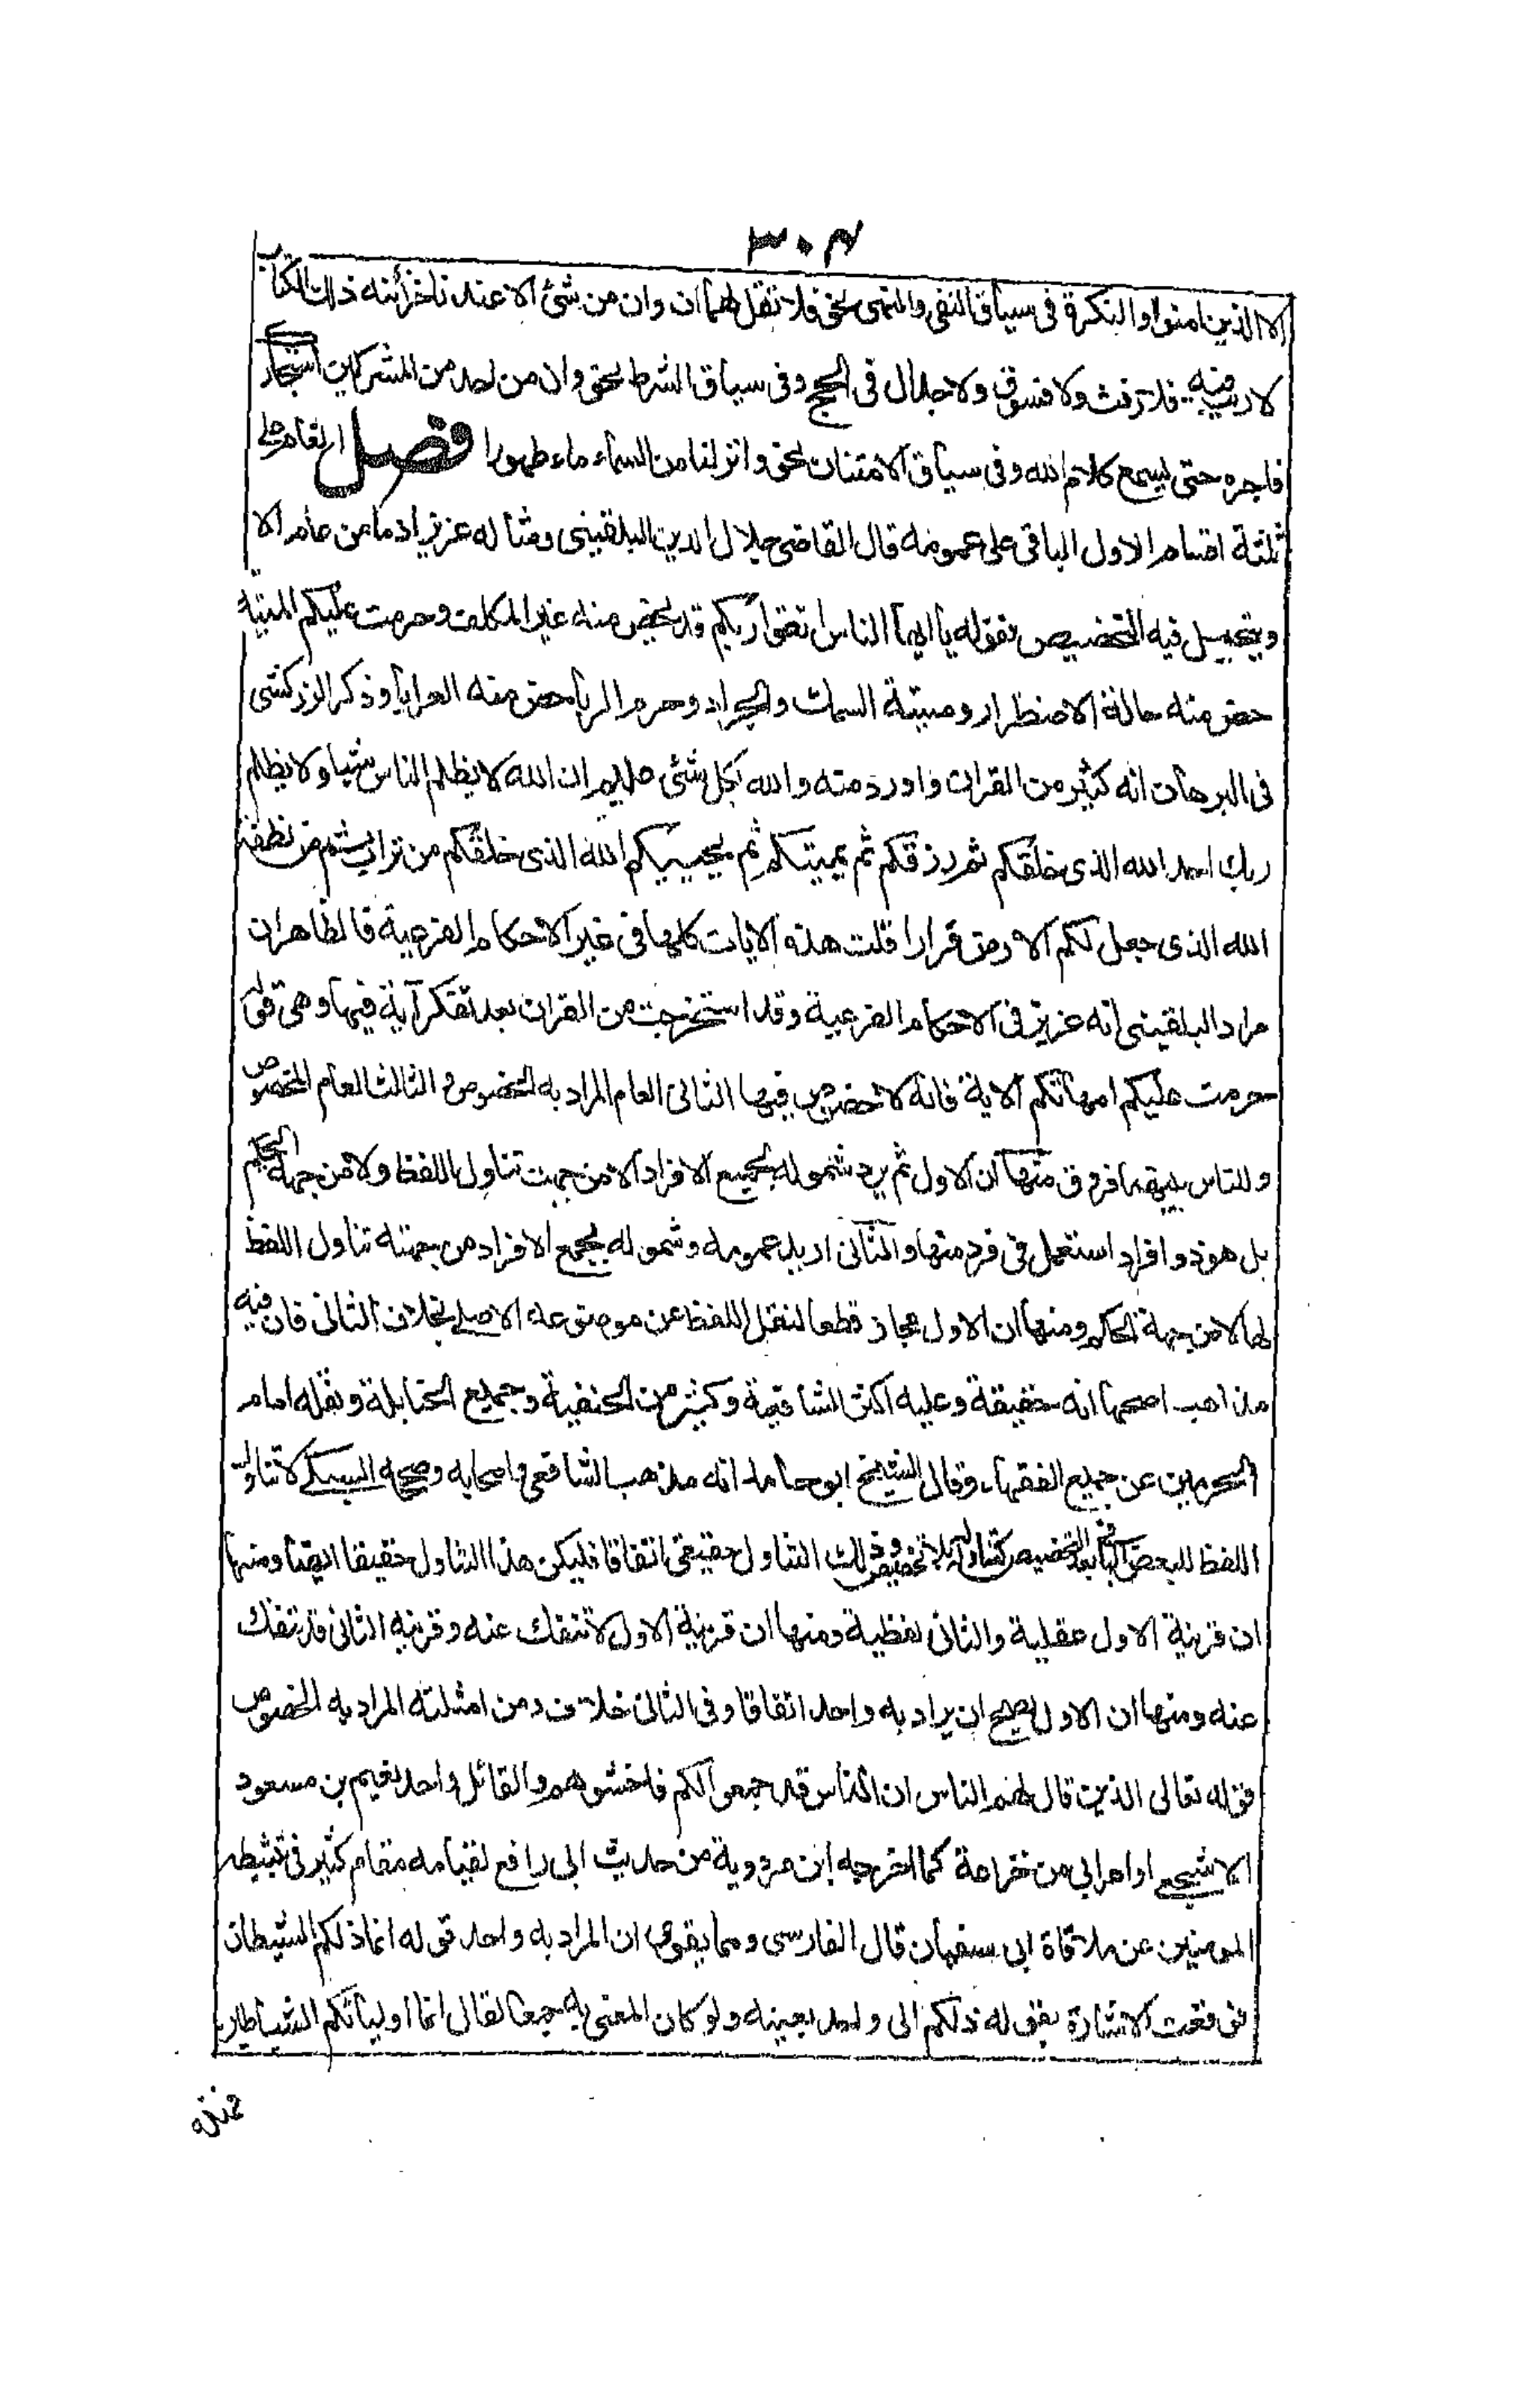 ٣٠٤
الا الذين امنوا والنكرة فى سياق النفى والنهى نحو فلا تقل لهما اف وان من شئ الا عندنا خزائنه ذلك الكتاب
لا ريب فيه فلا رفث ولا فسوق ولا جدال فى الحج وفى سياق الشرط نحو وان من احد من المشركين استجارك
فاجره حتى يسمع كلام الله وفى سياق الامتنان نحو وانزلنا من السماء ماء طهورا فصل العام على
ثلثة اقسام الاول الباقى على عمومه قال القاضى جلال الدين البلقينى ومثاله عزيز اذ ما من عام الا
ويتخيل فيه التخصيص فقوله يا ايها الناس اتقوا ربكم قد يخص منه غير المكلف وحرمت عليكم الميتة
خص منه حالة الاضطرار وميتة السمك والجراد وحرم الربا خص منه العرايا وذكر الزركشى
فى البرهان انه كثير من القران واورد منه والله بكل شئ عليم ان الله لا يظلم الناس شيا ولا يظلم
ربك احدا الله الذى خلقكم ثم رزقكم ثم يميتكم ثم يحييكم الله الذى خلقكم من تراب ثم من نطفة
الله الذى جعل لكم الارض قرارا قلت هذه الايات كلها فى غير الاحكام الفرعية فالظاهر ان
مراد البلقينى انه عزيز فى الاحكام الفرعية وقد استخرجت من القران بعد تفكر آية فيها وهى قوله
حرمت عليكم امهاتكم الاية فانه لا خصوص فيها الثانى العام المراد به الخصوص الثالث العام المخصوص
وللناس بينهما فروق منها ان الاول لم يرد شموله لجميع الافراد لا من جهت تناول اللفظ ولا من جهة الحكم
بل هو ذو افراد استعمل فى فرد منها والثانى اريد عمومه وشموله لجميع الافراد من جهته تناول اللفظ
لها لا من جهة الحكم ومنها ان الاول مجاز قطعا لنقل اللفظ عن موضوعه الاصلى بخلاف الثانى فان فيه
مذاهب اصحها انه حقيقة وعليه اكثر الشافعية وكثير من الحنفية وجميع الحنابلة ونقله امام
الحرمين عن جميع الفقهاء وقال الشيخ ابو حامد انه مذهب الشافعى واصحابه وصححه السبكى لان تناول
اللفظ للبعض الباقى بعد التخصيص كتناوله له بلا تخصيص وذلك التناول حقيقى اتفاقا فليكن هذا التناول حقيقا ايضا ومنها
ان قرينة الاول عقلية والثانى لفظية ومنها ان قرينة الاول لا تنفك عنه وقرينه الثانى قد تنفك
عنه ومنها ان الاول يصح ان يراد به واحد اتفاقا وفى الثانى خلاف ومن امثلته المراد به الخصوص
قوله تعالى الذين قال لهم الناس ان الناس قد جمعوا لكم فاخشوهم والقائل واحد نعيم بن مسعود
الاشجعى او اعرابى من خزاعة كما اخرجه ابن مردوية من حديث ابى رافع لقيامه مقام كثير فى تثبيطه
المومنين عن ملاقاة ابى سفيان قال الفارسى ومما يقوى ان المراد به واحد قوله انما ذلكم الشيطان
فوقعت الاشارة بقوله ذلكم الى واحد بعينه ولو كان المعنى به جمعا لقال انما اوليائكم الشياطين